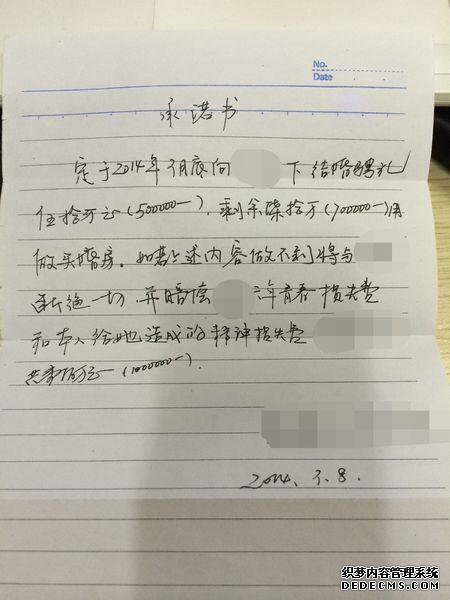 No.
Date
承诺书
定于2014年3月底向 下结婚聘礼
伍拾万元(500000一)、剩余 拾万(900000一)用
做买婚房。如若上述内容做不到将与
断绝一切,并赔偿 青春损失费
和本人给她造成的精神损失费
共 佰万元(1000000一).
2014、3、8.
织梦内容管理系统
DEDECMS.COM